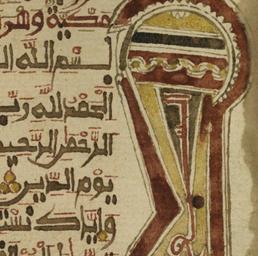 مكية وهى
بسم الله ال
الحمد لله رب
الرحمن الرحيم
يوم الدين
وإياك نستـ